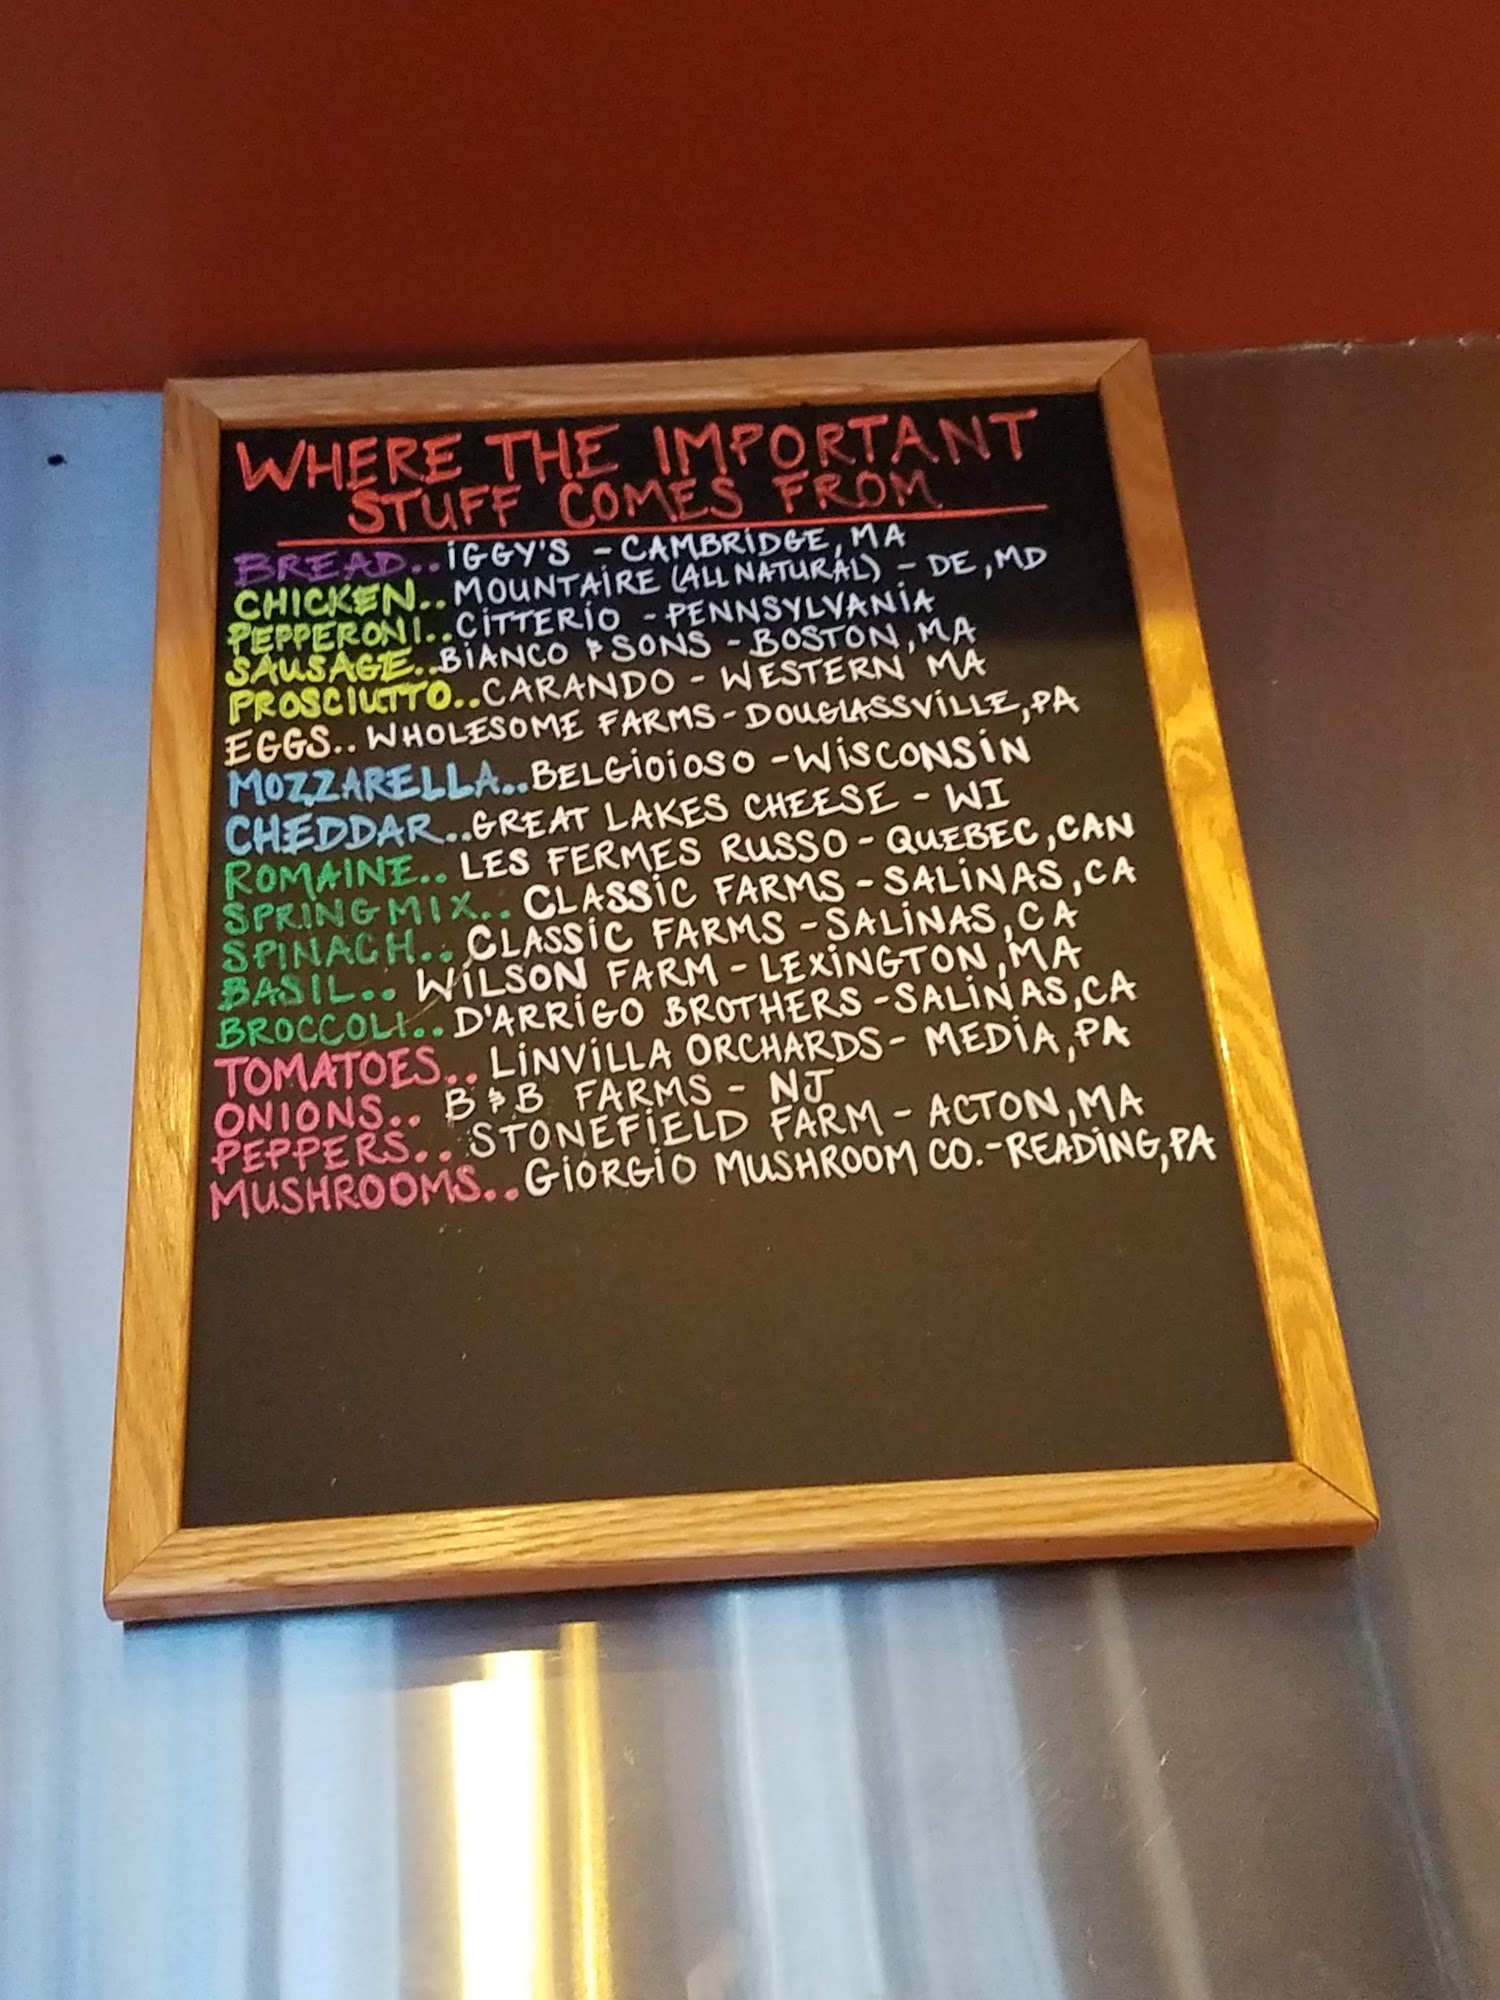 WHERE THE IMPORTANT
STUFF COMES FROM
BREAD..IGGY'S - CAMBRIDGE, MA
CHICKEN..MOUNTAIRE (ALL NATURAL) - DE, MD
PEPPERONI..CITTERIO - PENNSYLVANIA
SAUSAGE..BIANCO & SONS - BOSTON, MA
PROSCIUTTO..CARANDO - WESTERN MA
EGGS..WHOLESOME FARMS - DOUGLASSVILLE, PA
MOZZARELLA..BELGIOIOSO - WISCONSIN
CHEDDAR..GREAT LAKES CHEESE - WI
ROMAINE..LES FERMES RUSSO - QUEBEC, CAN
SPRING MIX..CLASSIC FARMS - SALINAS, CA
SPINACH..CLASSIC FARMS - SALINAS, CA
BASIL..WILSON FARM - LEXINGTON, MA
BROCCOLI..D'ARRIGO BROTHERS - SALINAS, CA
TOMATOES..LINVILLA ORCHARDS - MEDIA, PA
ONIONS..B & B FARMS - NJ
PEPPERS..STONEFIELD FARM - ACTON, MA
MUSHROOMS..GIORGIO MUSHROOM CO. - READING, PA